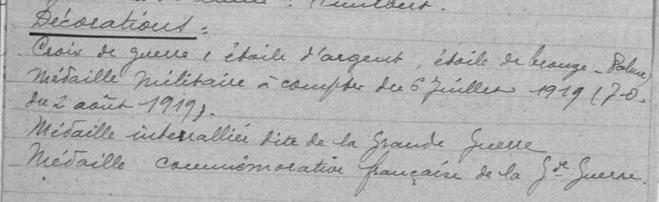 Décorations:
Croix de guerre (étoile d'argent, étoile de bronze - Palme)
Médaille Militaire à compter du 6 Juillet 1919 (J.O.
du 2 août 1919).
Médaille interalliée dite de la Grande Guerre
Médaille commémorative française de la Gde Guerre.